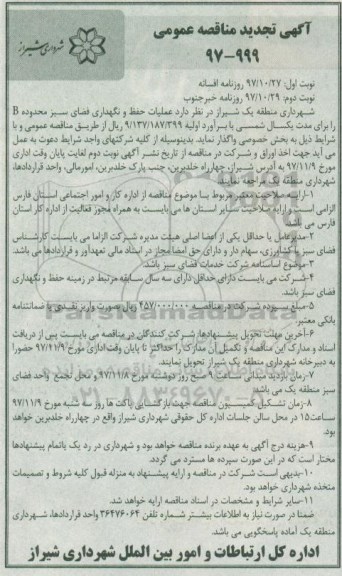 آگهی تجدید مناقصه عمومی
۹۷-۹۹۹
شهرداری شیراز
نوبت اول: ۹۷/۱۰/۲۷ روزنامه افسانه
نوبت دوم: ۹۷/۱۰/۲۹ روزنامه خبرجنوب
شهرداری منطقه یک شیراز در نظر دارد عملیات حفظ و نگهداری فضای سبز محدوده B
را برای مدت یکسال شمسی با برآورد اولیه ۹/۱۳۷/۱۸۷/۳۹۹ ریال از طریق مناقصه عمومی و با
شرایط ذیل به بخش خصوصی واگذار نماید. بدینوسیله از کلیه شرکتهای واجد شرایط دعوت به عمل
می آید جهت اخذ اوراق و شرکت در مناقصه از تاریخ نشر آگهی نوبت دوم لغایت پایان وقت اداری
مورخ ۹۷/۱۱/۹ به آدرس شیراز، چهارراه خلدبرین، جنب پارک خلدبرین، امورمالی، واحد قراردادها،
شهرداری منطقه یک مراجعه نمایند.
۱-ارایه صلاحیت معتبر مربوط با موضوع مناقصه از اداره کار و امور اجتماعی استان فارس
الزامی است و ارایه صلاحیت سایر استان ها می بایست به همراه مجوز فعالیت از اداره کار استان
فارس می باشد.
۲-مدیرعامل یا حداقل یکی از اعضا اصلی هیئت مدیره شرکت الزاما می بایست کارشناس
فضای سبز یا کشاورزی، سهام دار و دارای حق امضا مجاز در اسناد مالی تعهدآور و قراردادها می باشد.
۳-موضوع اساسنامه شرکت خدمات فضای سبز باشد.
۴-شرکت می بایست دارای حداقل دارای سه سال سابقه مرتبط در زمینه حفظ و نگهداری
فضای سبز باشد.
۵-مبلغ سپرده شرکت در مناقصه ۴۵۷/۰۰۰/۰۰۰ ریال بصورت واریز نقدی یا ضمانتنامه
بانکی معتبر.
۶-آخرین مهلت تحویل پیشنهادها، شرکت کنندگان در مناقصه می بایست پس از دریافت
اسناد و مدارک این مناقصه و تکمیل آن مدارک را حداکثر تا پایان وقت اداری مورخ ۹۷/۱۱/۹ حضورا
به دبیرخانه شهرداری منطقه یک شیراز تحویل نمایند.
۷-زمان بازدید میدانی ساعت ۹ صبح روز دوشنبه مورخ ۹۷/۱۱/۸ و محل تجمع واحد فضای
سبز منطقه یک می باشد.
۸-زمان تشکیل کمیسیون مناقصه جهت بازگشایی پاکت ها روز سه شنبه مورخ ۹۷/۱۱/۹
ساعت ۱۵ در محل سالن جلسات اداره کل حقوقی شهرداری شیراز واقع در چهارراه خلدبرین خواهد
بود.
۹-هزینه درج آگهی به عهده برنده مناقصه خواهد بود و شهرداری در رد یک یاتمام پیشنهادها
مختار است که در این صورت سپرده ها مسترد می گردد.
۱۰-بدیهی است شرکت در مناقصه و ارایه پیشنهاد به منزله قبول کلیه شروط و تصمیمات
متخذه شهرداری خواهد بود.
۱۱-سایر شرایط و مشخصات در اسناد مناقصه ارایه خواهد شد.
ضمنا در صورت نیاز به اطلاعات بیشتر شماره تلفن ۳۶۴۷۶۰۶۴ واحد قراردادها، شهرداری
منطقه یک آماده پاسخگویی می باشد.
اداره کل ارتباطات و امور بین الملل شهرداری شیراز